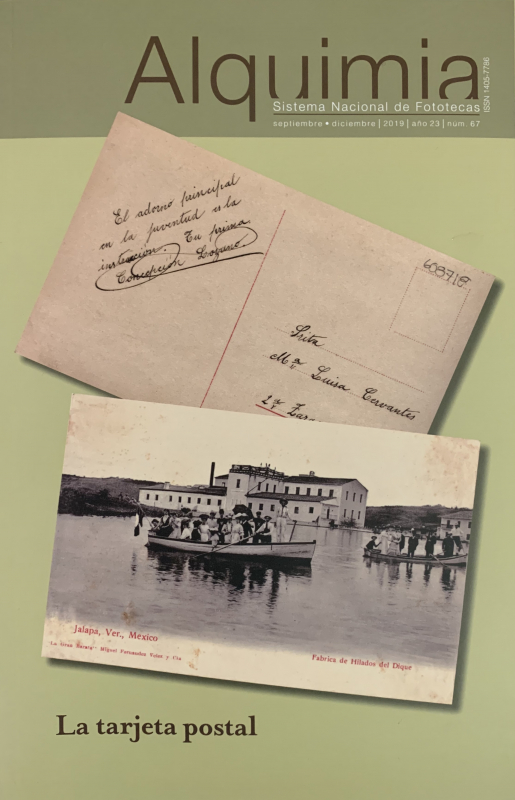 Alquimia
Sistema Nacional de Fototecas
ISSN 1405-7786
septiembre • diciembre | 2019 | año 23 | núm. 67
El adorno principal
en la juventud es la
instrucción. Tu prima
Concepción Lozano
608718
Srita
Ma. Luisa Cervantes
2a
Jalapa, Ver., Mexico
"La Gran Barata" Miguel Fernandez Velez y Cia
Fabrica de Hilados del Dique
La tarjeta postal